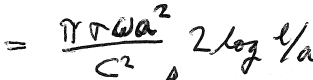 = πσωa²/c² 2 log l/a